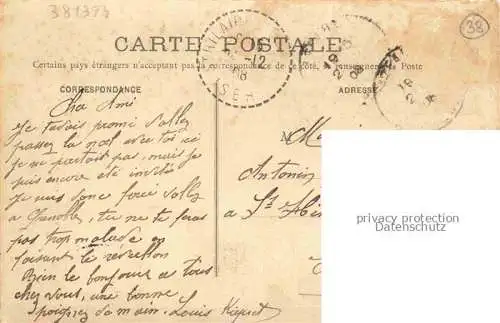 381373
38
CARTE POSTALE
Certains pays étrangers n'acceptant pas la correspondance de ce côté, se renseigner à la Poste
CORRESPONDANCE
ADRESSE
12
08
ISÈRE
Cher Ami
Je t'avais promi d'allez
passez la noël avec toi si
je ne partait pas, mais je
suis encore été invité
je suis donc forcé d'allez
a Grenoble, tu ne te feras
pas trop malade en
faisant le réveillon
Bien le bonjour a tous
chez vous, une bonne
poignez de main. Louis
Antonin
a St
privacy protection
Datenschutz